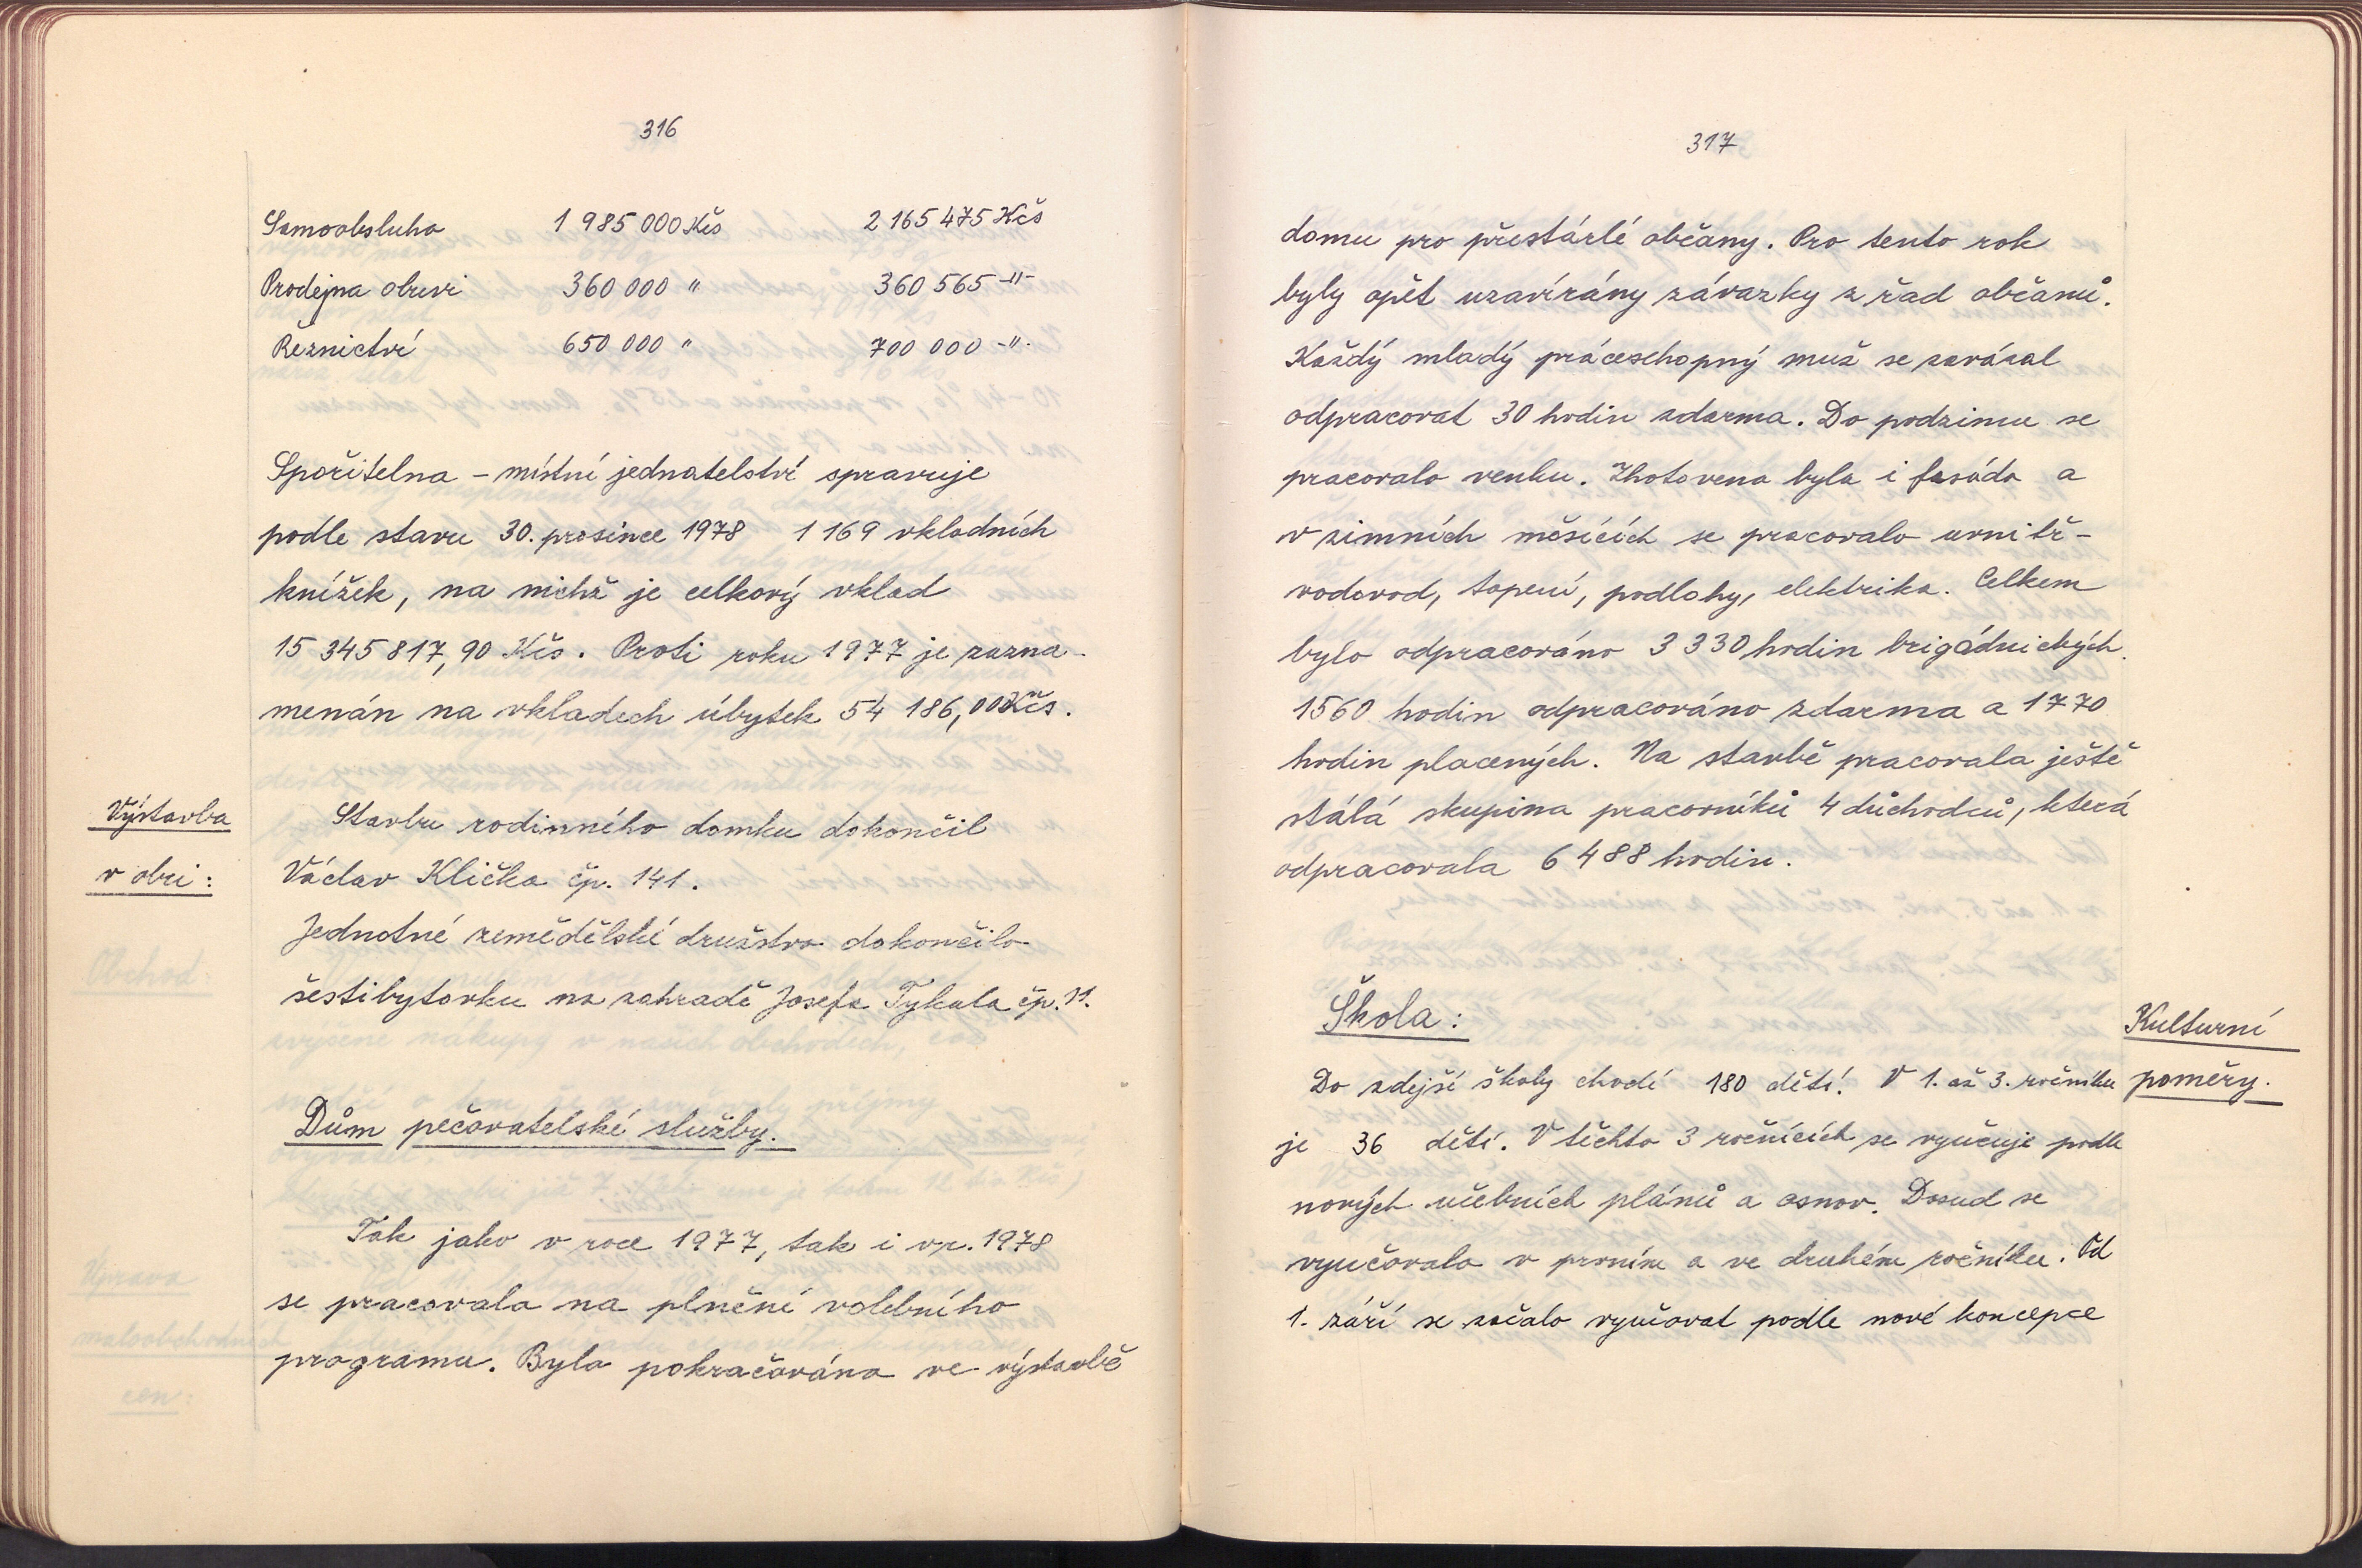 316
Samoobsluha 1 985 000 Kčs 2 165 475 Kčs
Prodejna obuvi 360 000 " 360 565 -"-
Řeznictví 650 000 " 700 000 -"-
Spořitelna - místní jednatelství spravuje
podle stavu 30. prosince 1978 1 169 vkladních
knížek, na nichž je celkový vklad
15 345 817,90 Kčs. Proti roku 1977 je zazna-
menán na vkladech úbytek 54 186,00 Kčs.
Výstavba
v obci:
Stavbu rodinného domku dokončil
Václav Klička čp. 141.
Jednotné zemědělské družstvo dokončilo
šestibytovku na zahradě Josefa Tykala čp. 11.
Dům pečovatelské služby.
Tak jako v roce 1977, tak i v r. 1978
se pracovalo na plnění volebního
programu. Bylo pokračováno ve výstavbě
317
domu pro přestárlé občany. Pro tento rok
byly opět uzavírány závazky z řad občanů.
Každý mladý práceschopný muž se zavázal
odpracovat 30 hodin zdarma. Do podzimu se
pracovalo venku. Zhotovena byla i fasáda a
v zimních měsících se pracovalo uvnitř -
vodovod, topení, podlahy, elektrika. Celkem
bylo odpracováno 3 330 hodin brigádnických.
1560 hodin odpracováno zdarma a 1770
hodin placených. Na stavbě pracovala ještě
stálá skupina pracovníků 4 důchodců, která
odpracovala 6 488 hodin.
Škola:
Kulturní
poměry.
Do zdejší školy chodí 180 dětí. V 1. až 3. ročníku
je 36 dětí. V těchto 3 ročnících se vyučuje podle
nových učebních plánů a osnov. Dosud se
vyučovalo v prvním a ve druhém ročníku. Od
1. září se začalo vyučovat podle nové koncepce